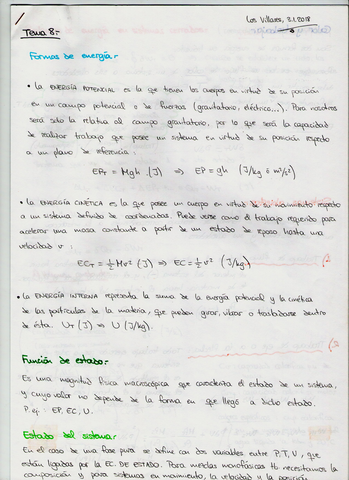 Los Villares, 3.1.2018
Tema 8.-
Formas de energía.-
• La ENERGÍA POTENCIAL es la que tienen los cuerpos en virtud de su posición
en un campo potencial o de fuerzas (gravitatorio, eléctrico...). Para nosotros
será sólo la relativa al campo gravitatorio, por lo que será la capacidad
de realizar trabajo que posee un sistema en virtud de su posición respecto
a un plano de referencia:
EPT = Mgh (J) ⇒ EP = gh (J/kg ó m²/s²)
• La ENERGÍA CINÉTICA es la que posee un cuerpo en virtud de su movimiento respecto
a un sistema definido de coordenadas. Puede verse como el trabajo requerido para
acelerar una masa constante a partir de un estado de reposo hasta una
velocidad v:
ECT = 1/2 Mv² (J) ⇒ EC = 1/2 v² (J/kg)
• La ENERGÍA INTERNA representa la suma de la energía potencial y la cinética
de las partículas de la materia, que pueden girar, vibrar o trasladarse dentro
de ésta. UT (J) ⇒ U (J/kg).
Función de estado.-
Es una magnitud física macroscópica que caracteriza el estado de un sistema,
y cuyo valor no depende de la forma en que llegó a dicho estado.
P. ej.: EP, EC, U.
Estado del sistema.-
En el caso de una fase pura se define con dos variables entre P, T, U, que
están ligadas por la EC. DE ESTADO. Para mezclas monofásicas tb necesitamos la
composición y para sistemas en movimiento, la velocidad y la posición